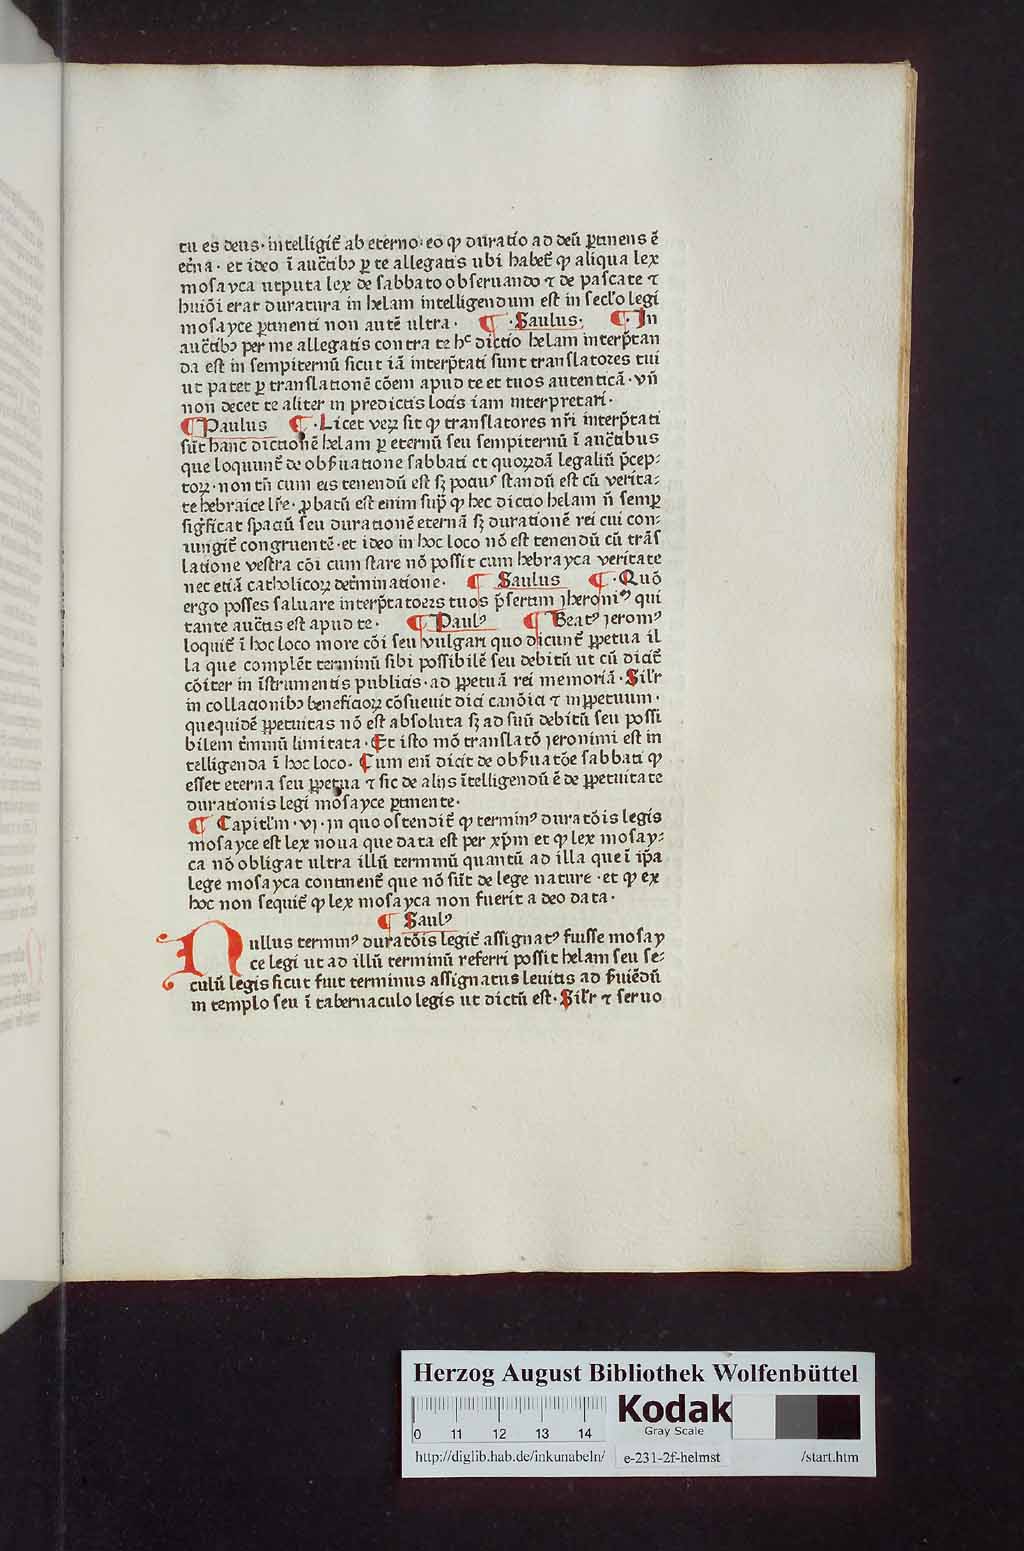 tu es deus· intelligit̃ ab eterno: eo ꝙ duratio ad deū ꝑtinens ē
et̃na · et ideo ī auct̃ibꝫ ꝑ te allegatis ubi habet̃ ꝙ aliqua lex
mosayca utputa lex de sabbato obseruando ⁊ de pascate ⁊
huiōi erat duratura in helam intelligendum est in secl̃o legi
mosayce ꝑtinenti non autē ultra · ¶ ·Saulus· ¶ · In
auct̃ibꝫ per me allegatis contra te hᶜ dictio helam interp̄tan
da est in sempiternū sicut iā interp̄tati sunt translatores tui
ut patet ꝑ translationē cōem apud te et tuos autenticā · vn̄
non decet te aliter in predictis locis iam interpretari·
¶ Paulus ¶ · Licet verꝝ sit ꝙ translatores nr̄i interp̄tati
sūt hanc dictionē helam ꝑ eternū seu sempiternū ī auct̃ibus
que loquunt̃ de obẜuatione sabbati et quorꝝdā legaliū p̄cep-
torꝝ · non tn̄ cum eis tenendū est sꝫ pociuꝰ standū est cū verita-
te hebraice lr̄e · ꝓbatū est enim sup̄ ꝙ hec dictio helam n̄ semꝑ
sigificat spaciū seu durationē eternā sꝫ durationē rei cui con-
iungit̃ congruentē · et ideo in hoc loco nō est tenendū cū trās
latione vestra cōi cum stare nō possit cum hebrayca veritate
nec etiā catholicorꝝ det̃minatione · ¶ Saulus ¶ · Quō
ergo posses saluare interp̄tatores tuos p̄sertim Jheronimꝰ qui
tante auct̃is est apud te · ¶ Paulꝰ ¶ Beatꝰ Jeromꝰ
loquit̃ ī hoc loco more cōi seu vulgari quo dicunt̃ ꝑpetua il
la que complēt terminū sibi possibilē seu debitū ut cū dicit̃
cōiter in īstrumentis publicis · ad ꝑpetuā rei memoriā · Sil̃r
in collacionibꝫ beneficiorꝝ cōsueuit dici canōici ⁊ inꝑpetuum ·
quequidē ꝑpetuitas nō est absoluta sꝫ ad suū debitū seu possi
bilem t̃minū limitata · Et isto mō translatō Jeronimi est in
telligenda ī hoc loco · Cum eni dicit de obẜuatōe sabbati ꝙ
esset eterna seu ꝑpetua ⁊ sic de alijs ītelligendū ē de ꝑpetuitate
durationis legi mosayce ꝑtinente·
¶ Capitl̃m · vj · in quo ostendit̃ ꝙ terminꝰ duratōis legis
mosayce est lex noua que data est per xp̄m et ꝙ lex mosay-
ca nō obligat ultra illū terminū quantū ad illa que ī ip̄a
lege mosayca continent̃ que nō sūt de lege nature · et ꝙ ex
hoc non sequit̃ ꝙ lex mosayca non fuerit a deo data ·
¶ Saulꝰ
Nullus terminꝰ duratōis legit̃ assignatꝰ fuisse mosay
ce legi ut ad illū terminū referri possit helam seu se-
culū legis sicut fuit terminus assignatus leuitis ad ẜuiēdū
in templo seu ī tabernaculo legis ut dictū est · Sil̃r ⁊ seruo
Herzog August Bibliothek Wolfenbüttel
0 11 12 13 14
Kodak
Gray Scale
http://diglib.hab.de/inkunabeln/ e-231-2f-helmst /start.htm